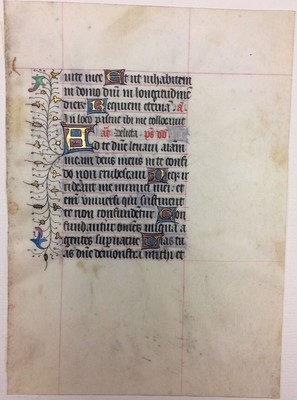 vite mee Et ut inhabitem
in domo dñi in longitudinē
dierū Requiem eterna. a.
In loco pascue ibi me collocauit
añ. Delicta. ps dd
Ad te dñe leuaui aīam
meam deus meus in te confi
do non erubescam Neqz ir
rideant me inimici mei: et
enim vniuersi qui sustinent
te non confundentur Con
fundantur omēs iniqua a
gentes superuacue Vias tu
as dñe demonstra michi et